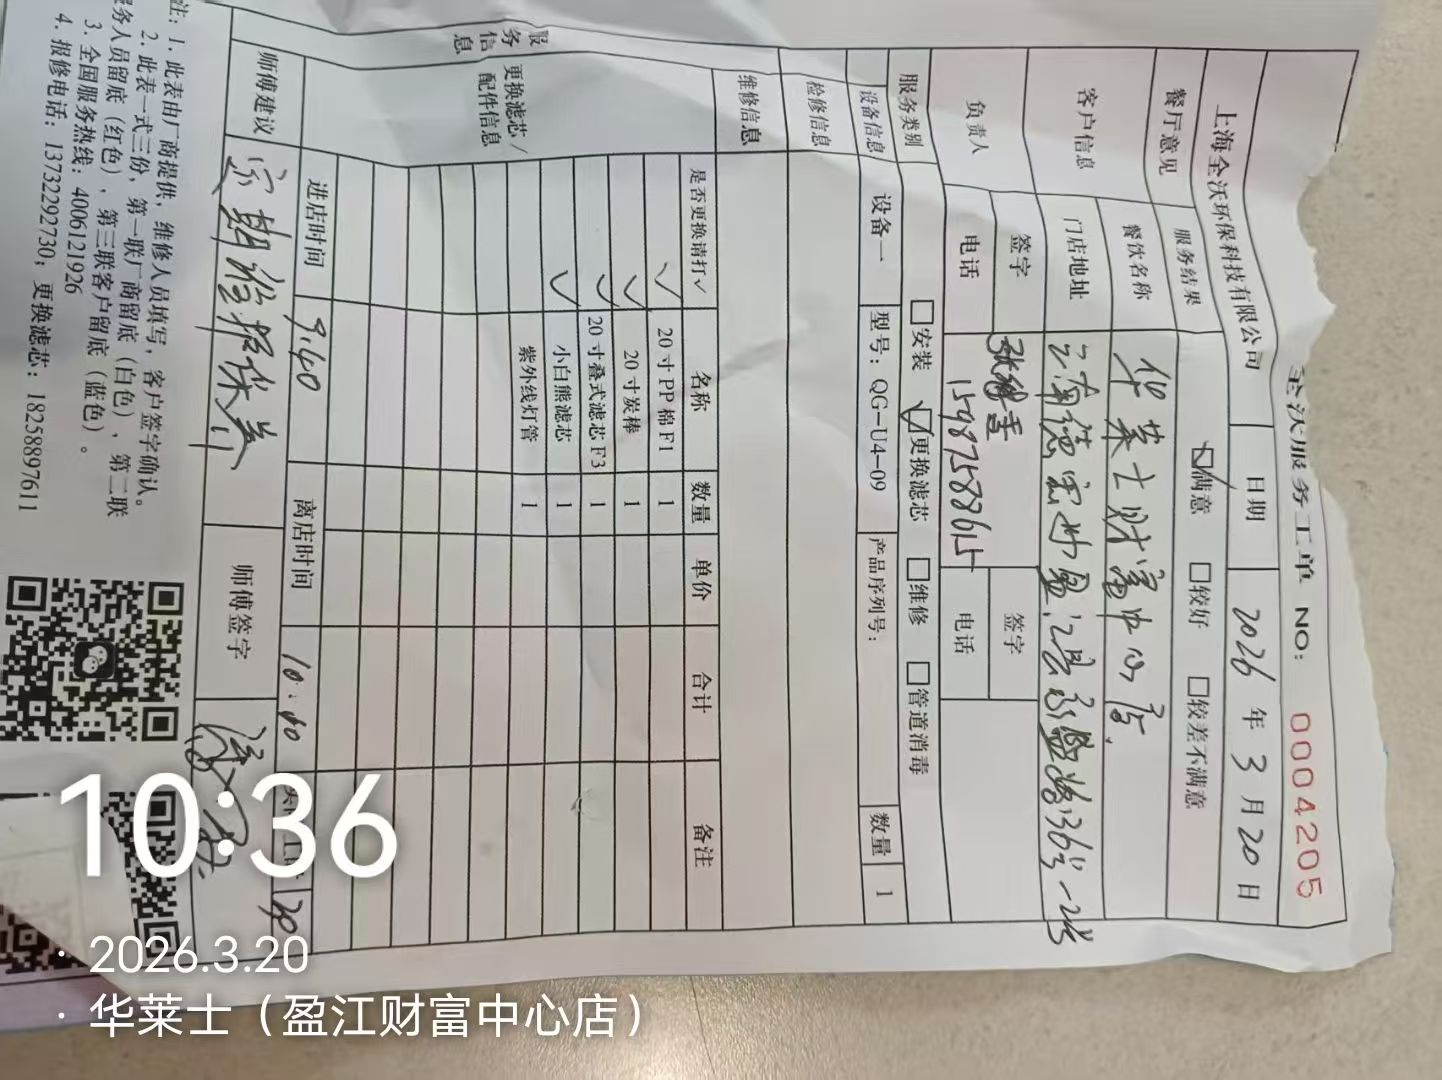 全沃服务工单 NO: 0004205
上海全沃环保科技有限公司 日期 2026 年 3 月 20 日
餐厅意见 服务结果 ☑满意 □较好 □较差不满意
客户信息 餐饮名称 华莱士财富中心店
门店地址 云南德宏州盈江县永盛路36号-2号
负责人 签字 签字
电话 15987588615 电话
服务类别 □安装 ☑更换滤芯 □维修 □管道消毒
设备信息 设备一 型号: QG-U4-09 产品序列号: 数量 1
检修信息
维修信息
服务信息
更换滤芯/配件信息
是否更换请打√ 名称 数量 单价 合计 备注
√ 20寸PP棉F1 1
√ 20寸炭棒 1
√ 20寸叠式滤芯F3 1
√ 小白熊滤芯 1
紫外线灯管 1
进店时间 9.40 离店时间 10.40
师傅建议 定期维护保养 师傅签字
注: 1. 此表由厂商提供, 维修人员填写, 客户签字确认。
2. 此表一式三份, 第一联厂商留底 (白色), 第二联
务人员留底 (红色), 第三联客户留底 (蓝色)。
3. 全国服务热线: 4006121926
4. 报修电话: 13732292730; 更换滤芯: 18258897611
10:36
· 2026.3.20
· 华莱士（盈江财富中心店）